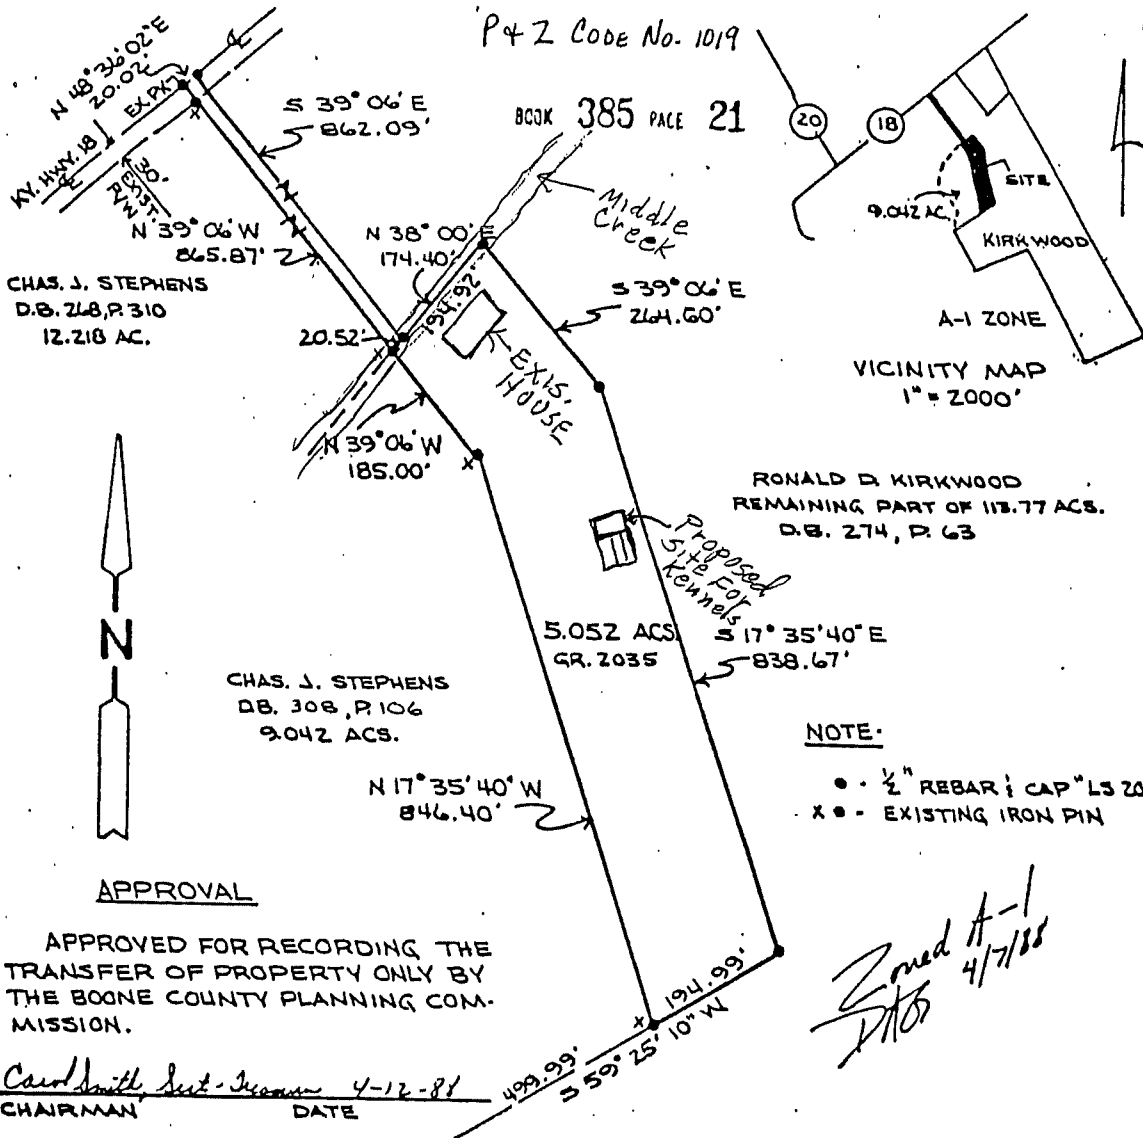 P & Z CODE No. 1019
BOOK 385 PAGE 21
N 48° 36' 02" E
20.02'
EX. PKT
KY. HWY. 18
30'
EXIST.
R/W
S 39° 06' E
862.09'
N 39° 06' W
865.87'
CHAS. J. STEPHENS
D.B. 268, P. 310
12.218 AC.
N 38° 00' E
174.40'
194.92'
20.52'
Middle
Creek
S 39° 06' E
264.60'
EXIS.
HOUSE
N 39° 06' W
185.00'
20
18
SITE
9.042 AC.
KIRKWOOD
A-1 ZONE
VICINITY MAP
1" = 2000'
RONALD D. KIRKWOOD
REMAINING PART OF 113.77 ACS.
D.B. 274, P. 63
Proposed
Site For
Kennels
N
5.052 ACS.
GR. 2035
S 17° 35' 40" E
838.67'
CHAS. J. STEPHENS
D.B. 308, P. 106
9.042 ACS.
N 17° 35' 40" W
846.40'
NOTE.
● - 1/2" REBAR & CAP "LS 20
X ● - EXISTING IRON PIN
APPROVAL
APPROVED FOR RECORDING THE
TRANSFER OF PROPERTY ONLY BY
THE BOONE COUNTY PLANNING COM-
MISSION.
Carol Smith, 4-12-88
CHAIRMAN DATE
194.99'
499.99'
S 59° 25' 10" W
Zoned A-1
4/7/88